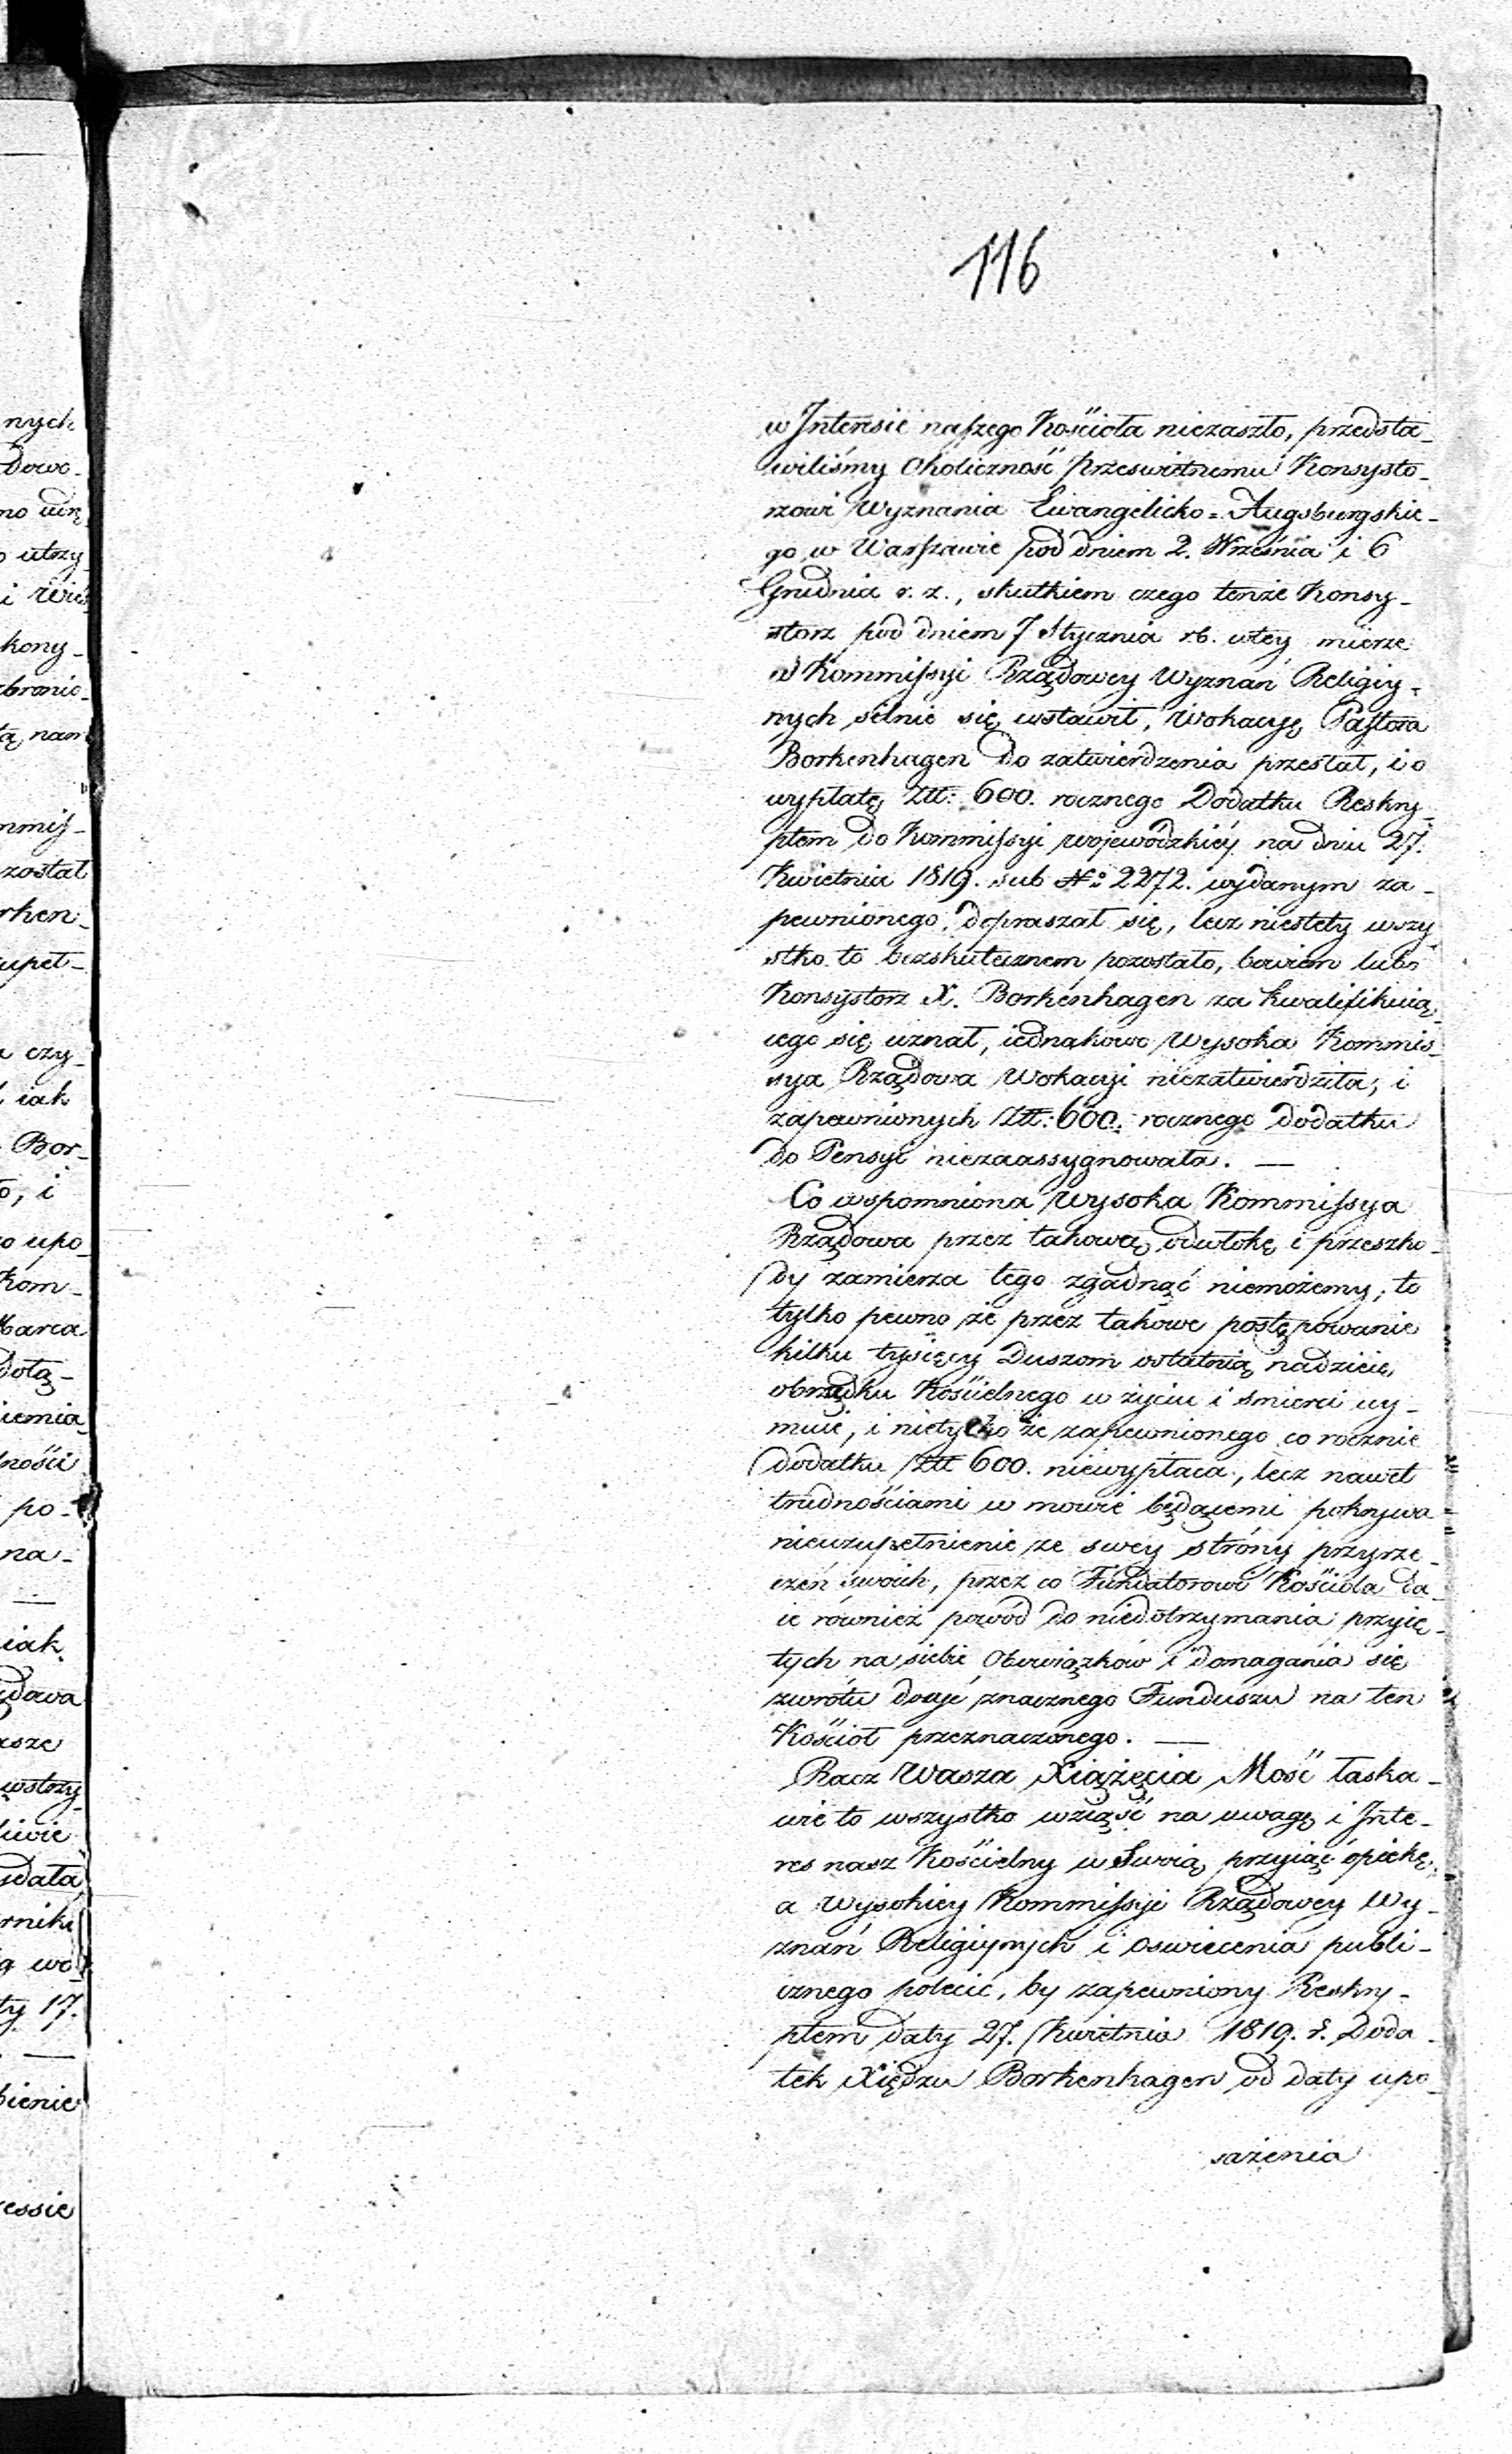 116
w Interesie naszego Kościoła niezaszło, przedsta-
wiliśmy Okoliczność Prześwietnemu Konsysto-
rzowi Wyznania Ewangelicko-Augsburgskie-
go w Warszawie pod dniem 2. Września i 6
Grudnia r. z., skutkiem czego tenże Konsy-
storz pod dniem 7 Stycznia rb. wtey mierze
d Kommissyi Rządowey Wyznań Religiy-
nych silnie się wstawił, Wokacyę Pastora
Borkenhagen do zatwierdzenia przesłał, i o
wypłatę Złł: 600. rocznego Dodatku Reskry-
ptem do Kommissyi Wojewódzkiéy na dniu 27.
Kwietnia 1819. sub No 2272. wydanym za-
pewnionego, dopraszał się, lecz niestety wszy-
stko to bezskutecznem pozostało, bowiem lubo
Konsystorz X. Borkenhagen za kwalifikuią-
cego się uznał, iednakowo Wysoka Kommis-
sya Rządowa Wokacyi niezatwierdziła, i
zapewnionych Złł: 600. rocznego dodatku
do Pensyi niezaassygnowała. —
Co wspomniona Wysoka Kommissya
Rządowa przez takową odwłokę i przeszko-
dy zamierza tego zgadnąć niemożemy, to
tylko pewno że przez takowe postępowanie
kilku tysięcy Duszom ostatnią nadzieię
obrządku Kościelnego w życiu i śmierci uy-
muie, i nietylko że zapewnionego co rocznie
dodatku Złł 600. niewypłaca, lecz nawet
trudnościami w mowie będącemi pokrywa
nieuzupełnienie ze swey stróny przyrze-
czeń swoich, przez co Fundatorowi Kościoła da-
ie również powód do niedotrzymania przyię-
tych na siebie Obowiązków i domagania się
zwrótu dosyć znacznego Funduszu na ten
Kościoł przeznaczonego. —
Racz Wasza Xiążęcia Mość łaska-
wie to wszystko wziąść na uwagę i Inte-
res nasz Kościelny w Swoią przyiąć opiekę,
a Wysokiey Kommissyi Rządowey Wy-
znań Religiynych i Oświecenia publi-
cznego polecić, by zapewniony Reskry-
ptem daty 27. Kwietnia 1819. r. Doda-
tek Xiędzu Borkenhagen od daty upo-
sażenia